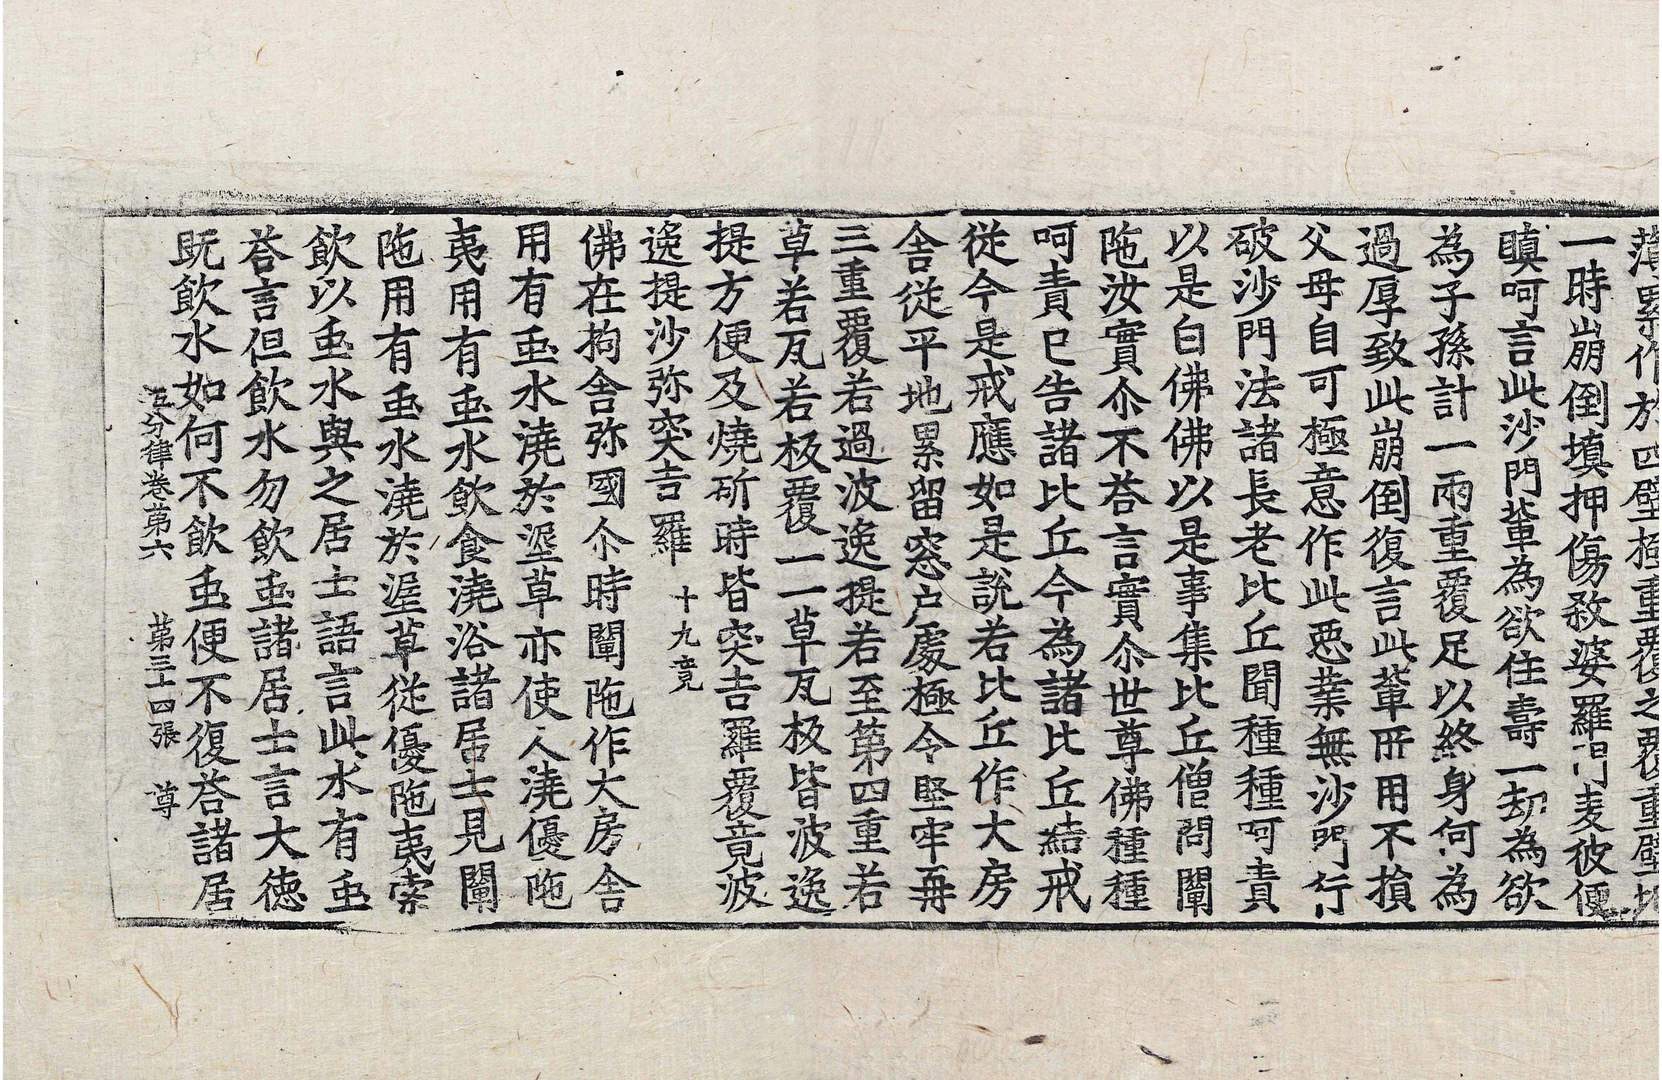 薄累作於四壁極重覆之覆重壁圮
一時崩倒填押傷敎婆羅門麦彼便
瞋呵言此沙門軰為欲住壽一劫為欲
為子孫計一兩重覆足以終身何為
過厚致此崩倒復言此軰所用不損
父母自可極意作此惡業無沙門行
破沙門法諸長老比丘聞種種呵責
以是白佛佛以是事集比丘僧問闡
陁汝實尒不荅言實尒世尊佛種種
呵責已告諸比丘今為諸比丘結戒
從今是戒應如是說若比丘作大房
舍從平地累留窓戶處極令堅牢再
三重覆若過波逸提若至第四重若
草若瓦若板覆一一草瓦板皆波逸
提方便及燒斫時皆突吉羅覆竟波
逸提沙弥突吉羅 十九竟
佛在拘舍弥國尒時闡陁作大房舍
用有虫水澆於埿草亦使人澆優陁
夷用有虫水飲食澆浴諸居士見闡
陁用有虫水澆於埿草從優陁夷索
飲以虫水與之居士語言此水有虫
荅言但飲水勿飲虫諸居士言大德
旣飲水如何不飲虫便不復荅諸居
五分律卷第六 第三十四張 尊